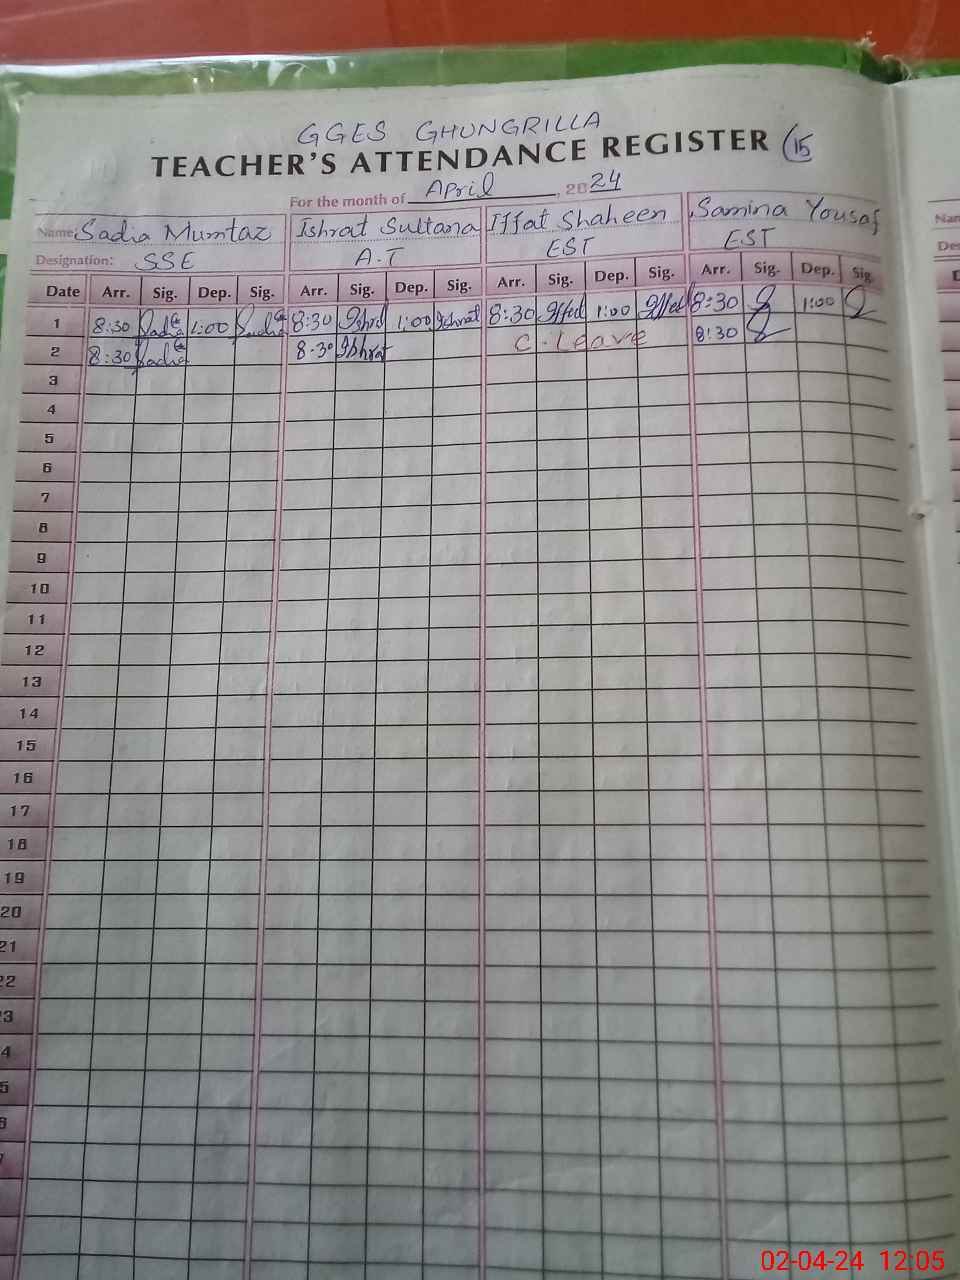 GGES GHUNGRILLA
TEACHER'S ATTENDANCE REGISTER 15
For the month of April 2024
Name: Sadia Mumtaz Ishrat Sultana Iffat Shaheen Samina Yousaf Nam
Designation: SSE A.T EST EST Des
Date Arr. Sig. Dep. Sig. Arr. Sig. Dep. Sig. Arr. Sig. Dep. Sig. Arr. Sig. Dep. Sig. D
1 8:30 Sadia 1:00 Sadia 8:30 Ishrat 1:00 Ishrat 8:30 Iffat 1:00 Iffat 8:30 1:00
2 8:30 Sadia 8:30 Ishrat C.Leave 8:30
3
4
5
6
7
8
9
10
11
12
13
14
15
16
17
18
19
20
21
22
3
4
5
6
7
02-04-24 12:05